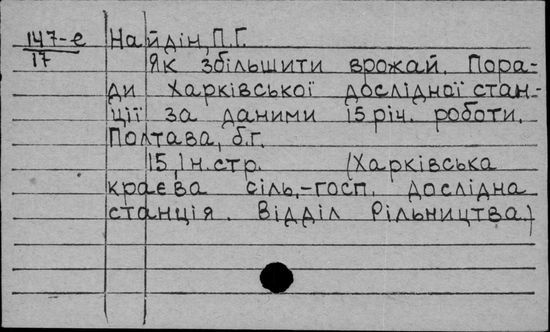 147-е Найдін, П.Г.
17
Як збільшити врожай. Пора-
ди Харківської дослідної стан-
ції за даними 15 річ. роботи.
Полтава, б.г.
15, 1 н.стр. (Харківська
краєва сіль.-госп. дослідна
станція. Відділ Рільництва.)